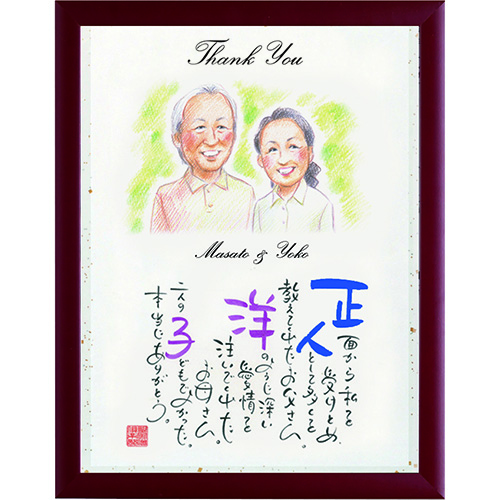 Thank You
Masato & Yoko
正面から私を受けとめ、
人として多くを
教えてくれたお父さん。
洋のように深い
愛情を
注いでくれた
お母さん。
二人の子どもでよかった。
本当にありがとう。